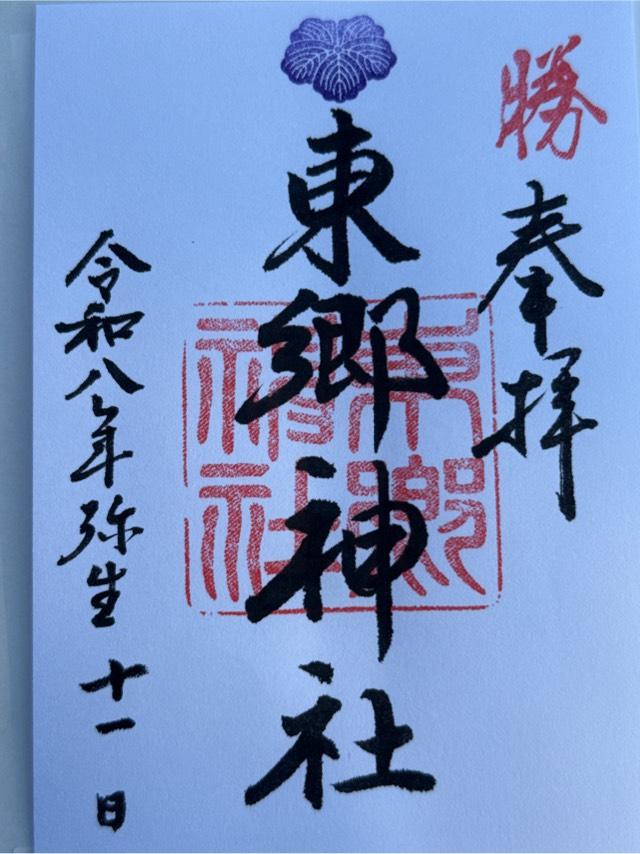 勝
奉拝
東郷神社
東郷神社
令和八年弥生十一日